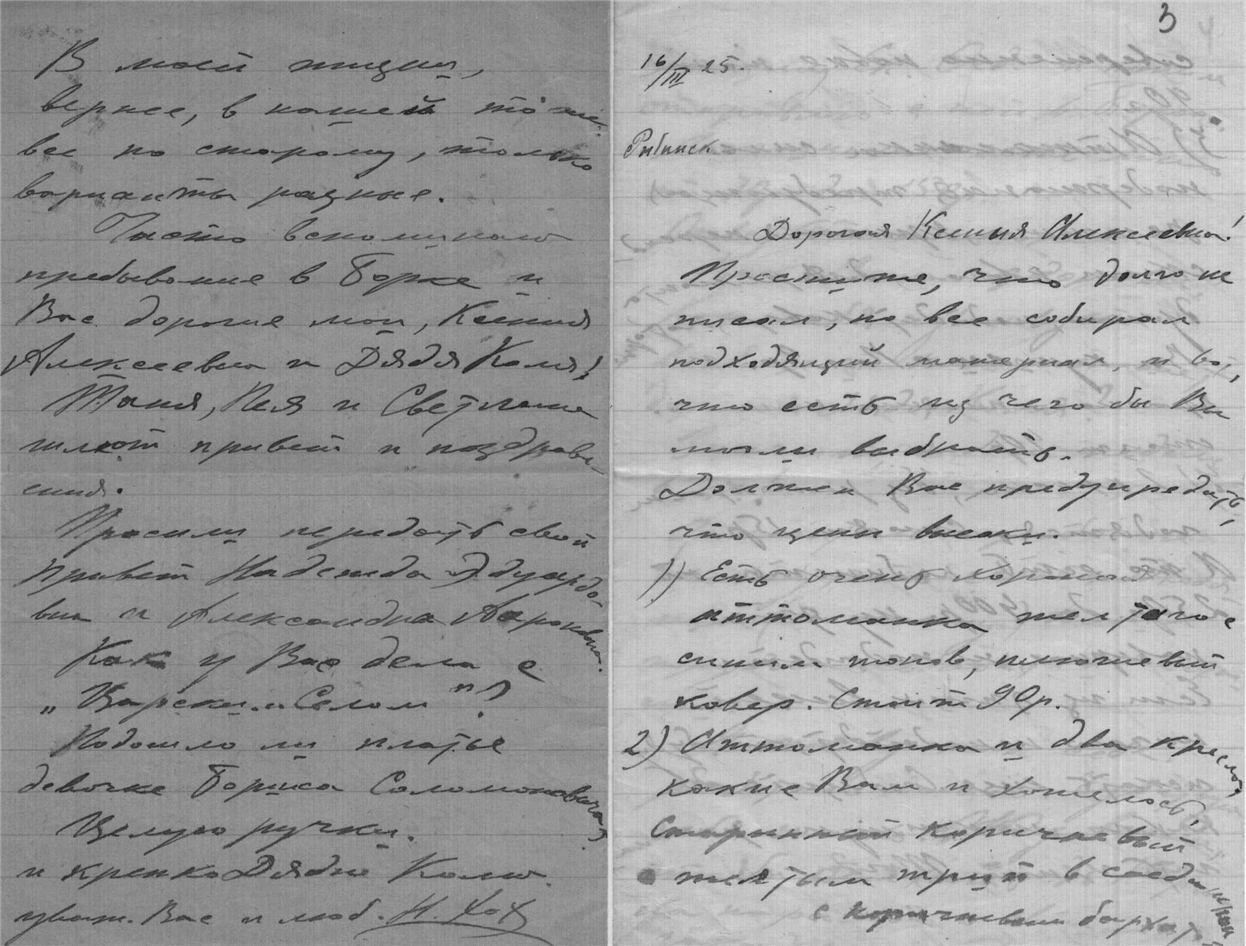 В моей жизни,
вернее, в нашей то же
все по старому, только
варианты разные.
Часто вспоминаю
пребывание в Борке и
Вас дорогие мои, Ксения
Алексеевна и Дядя Коля!
Таня, Ляля и Светлана
шлют привет и поздравле-
ния.
Просили передать свой
привет Надежда Эдуардо-
вна и Александра
Как у Вас дела с
„Царским Селом"?
Подошло ли платье
девочке Бориса Соломоновича?
Целую ручки.
и крепко Дядю Колю.
уваж. Вас и люб. Н.
3
16/III 25.
Рыбинск
Дорогая Ксения Алексеевна!
Простите, что долго не
писал, но все собирал
подходящий материал, и вот,
что есть из чего бы Вы
могли выбрать.
Должен Вас предупредить,
что цены высоки.
1) Есть очень хорошая
аттоманка желтого с
синим тонов, плюшевый
ковер. Стоит 90 р.
2) Аттоманка и два кресла,
какие Вам и хотелось,
старинный коричневый
с желтым трип в соедине-
нии
с коричневым бархат